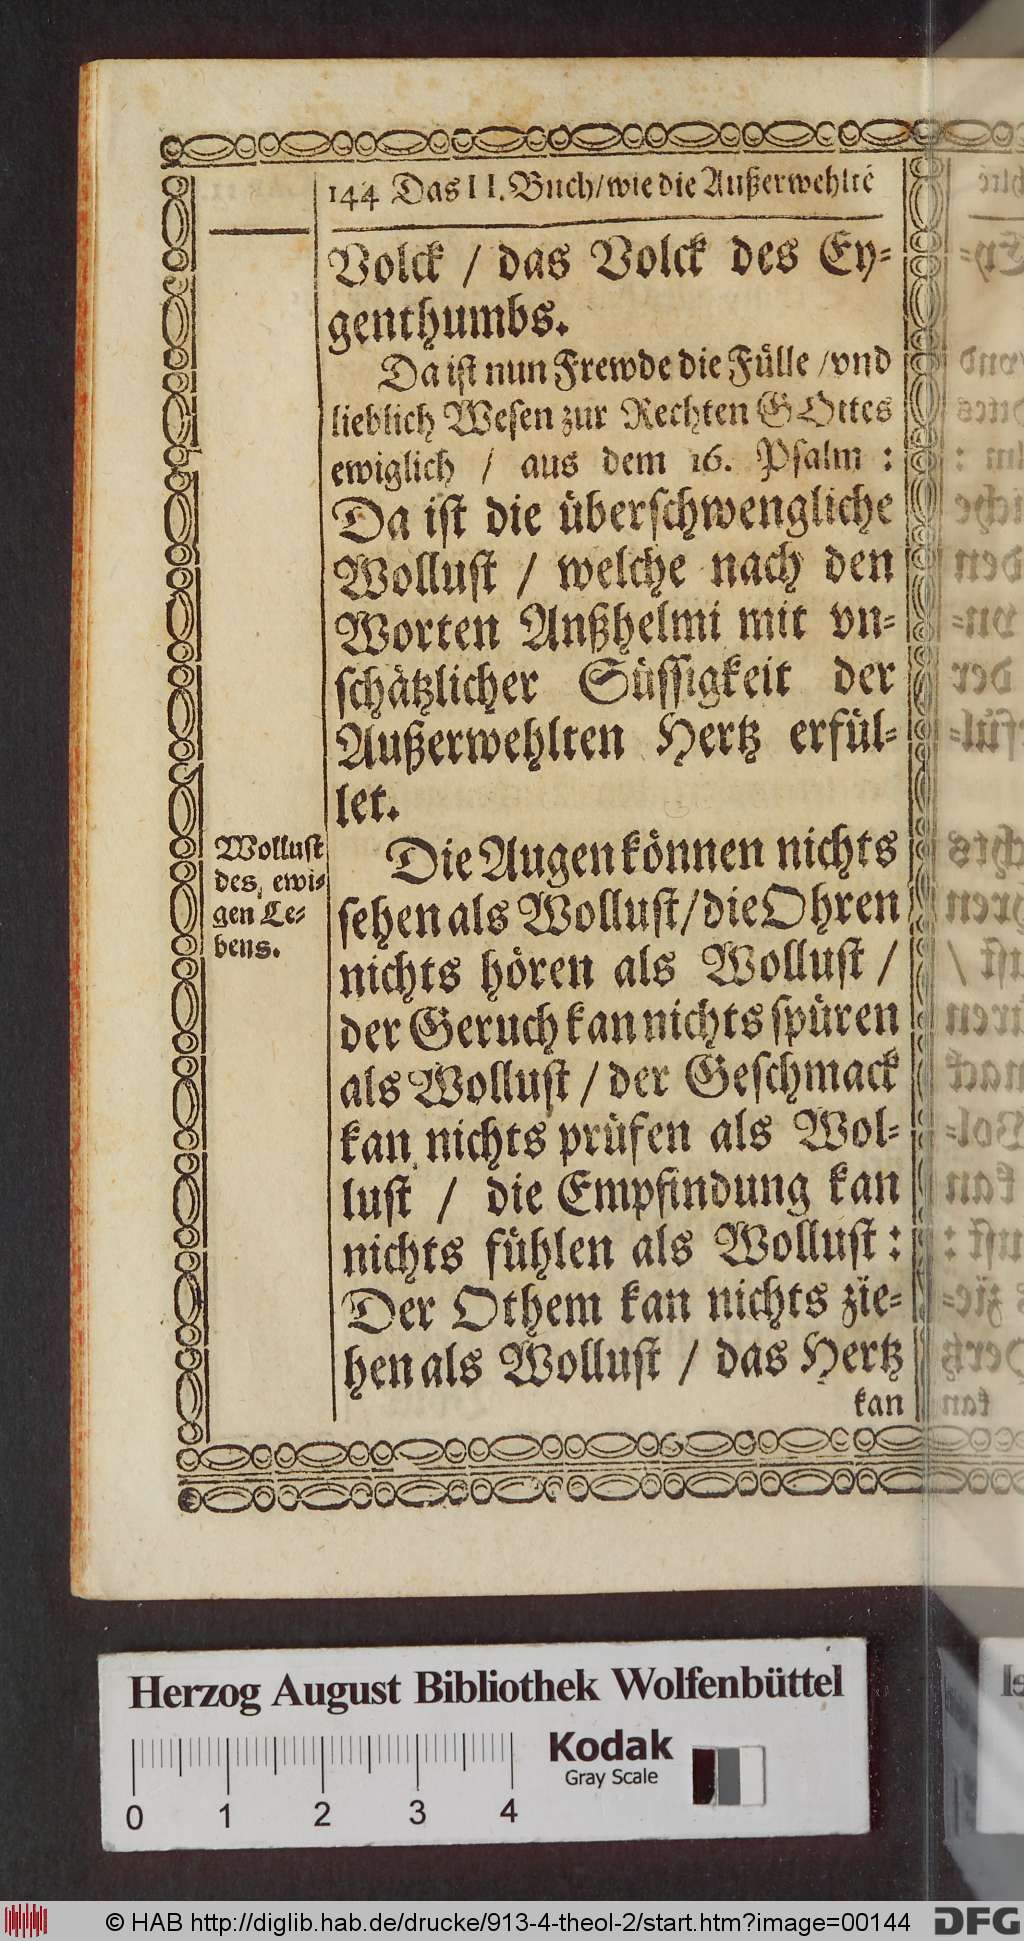 144 Das II. Buch/wie die Außerwehltē
Volck / das Volck des Ey-
genthumbs.
Da ist nun Frewde die Fülle /vnd
lieblich Wesen zur Rechten GOttes
ewiglich / aus dem 16. Psalm :
Da ist die überschwengliche
Wollust / welche nach den
Worten Anßhelmi mit vn-
schätzlicher Süssigkeit der
Außerwehlten Hertz erfül-
let.
Wollust
des ewi-
gen Le-
bens.
Die Augen können nichts
sehen als Wollust/die Ohren
nichts hören als Wollust /
der Geruch kan nichts spüren
als Wollust / der Geschmack
kan nichts prüfen als Wol-
lust / die Empfindung kan
nichts fühlen als Wollust :
Der Othem kan nichts zie-
hen als Wollust / das Hertz
kan
Herzog August Bibliothek Wolfenbüttel
0 1 2 3 4
Kodak
Gray Scale
© HAB http://diglib.hab.de/drucke/913-4-theol-2/start.htm?image=00144
DFG